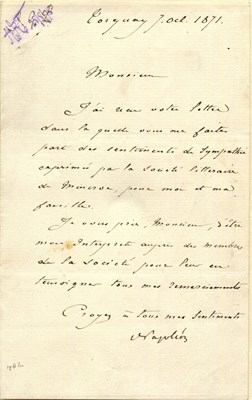 Torquay 7. Oct. 1871.
Monsieur
J'ai reçu votre lettre
dans la quelle vous me faites
part des sentiments de Sympathie
exprimé par la Société littéraire
de Minerve, pour moi et ma
famille.
Je vous prie, Monsieur, d'être
mon Interprète auprès des membres
de la Société pour leur en
temoigner tous mes remerciements
Croyez à tous mes Sentiments
Napoléon